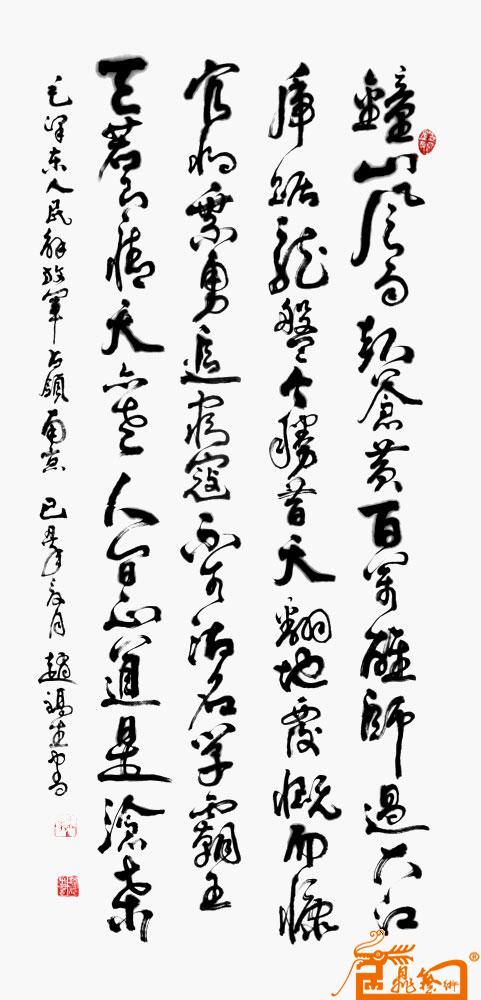 鐘山风雨起蒼黄百万雄師過大江
虎踞龍盤今勝昔天翻地覆慨而慷
宜将剩勇追窮寇不可沽名学霸王
天若有情天亦老人间正道是滄桑
毛泽东人民解放军占領南京 己丑年月 趙錫生书